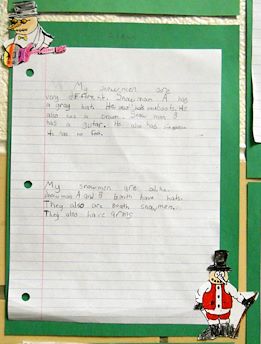 My snowmen are
very different. Snowman A has
a gray hat. He
also has a Snowman B
has a guitar. He also has
He has no feet.
My snowmen are alike.
Snowman A and B booth have hats.
They also are booth snowmen.
They also have arms